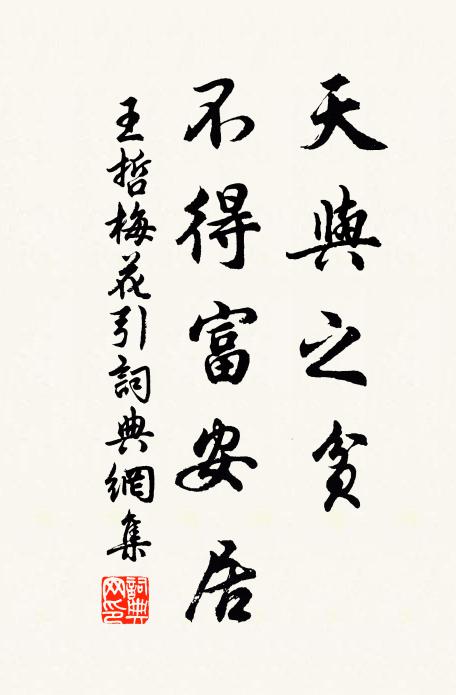 天與之貧
不得富安居
王哲梅花引詞典網集
詞典
网印